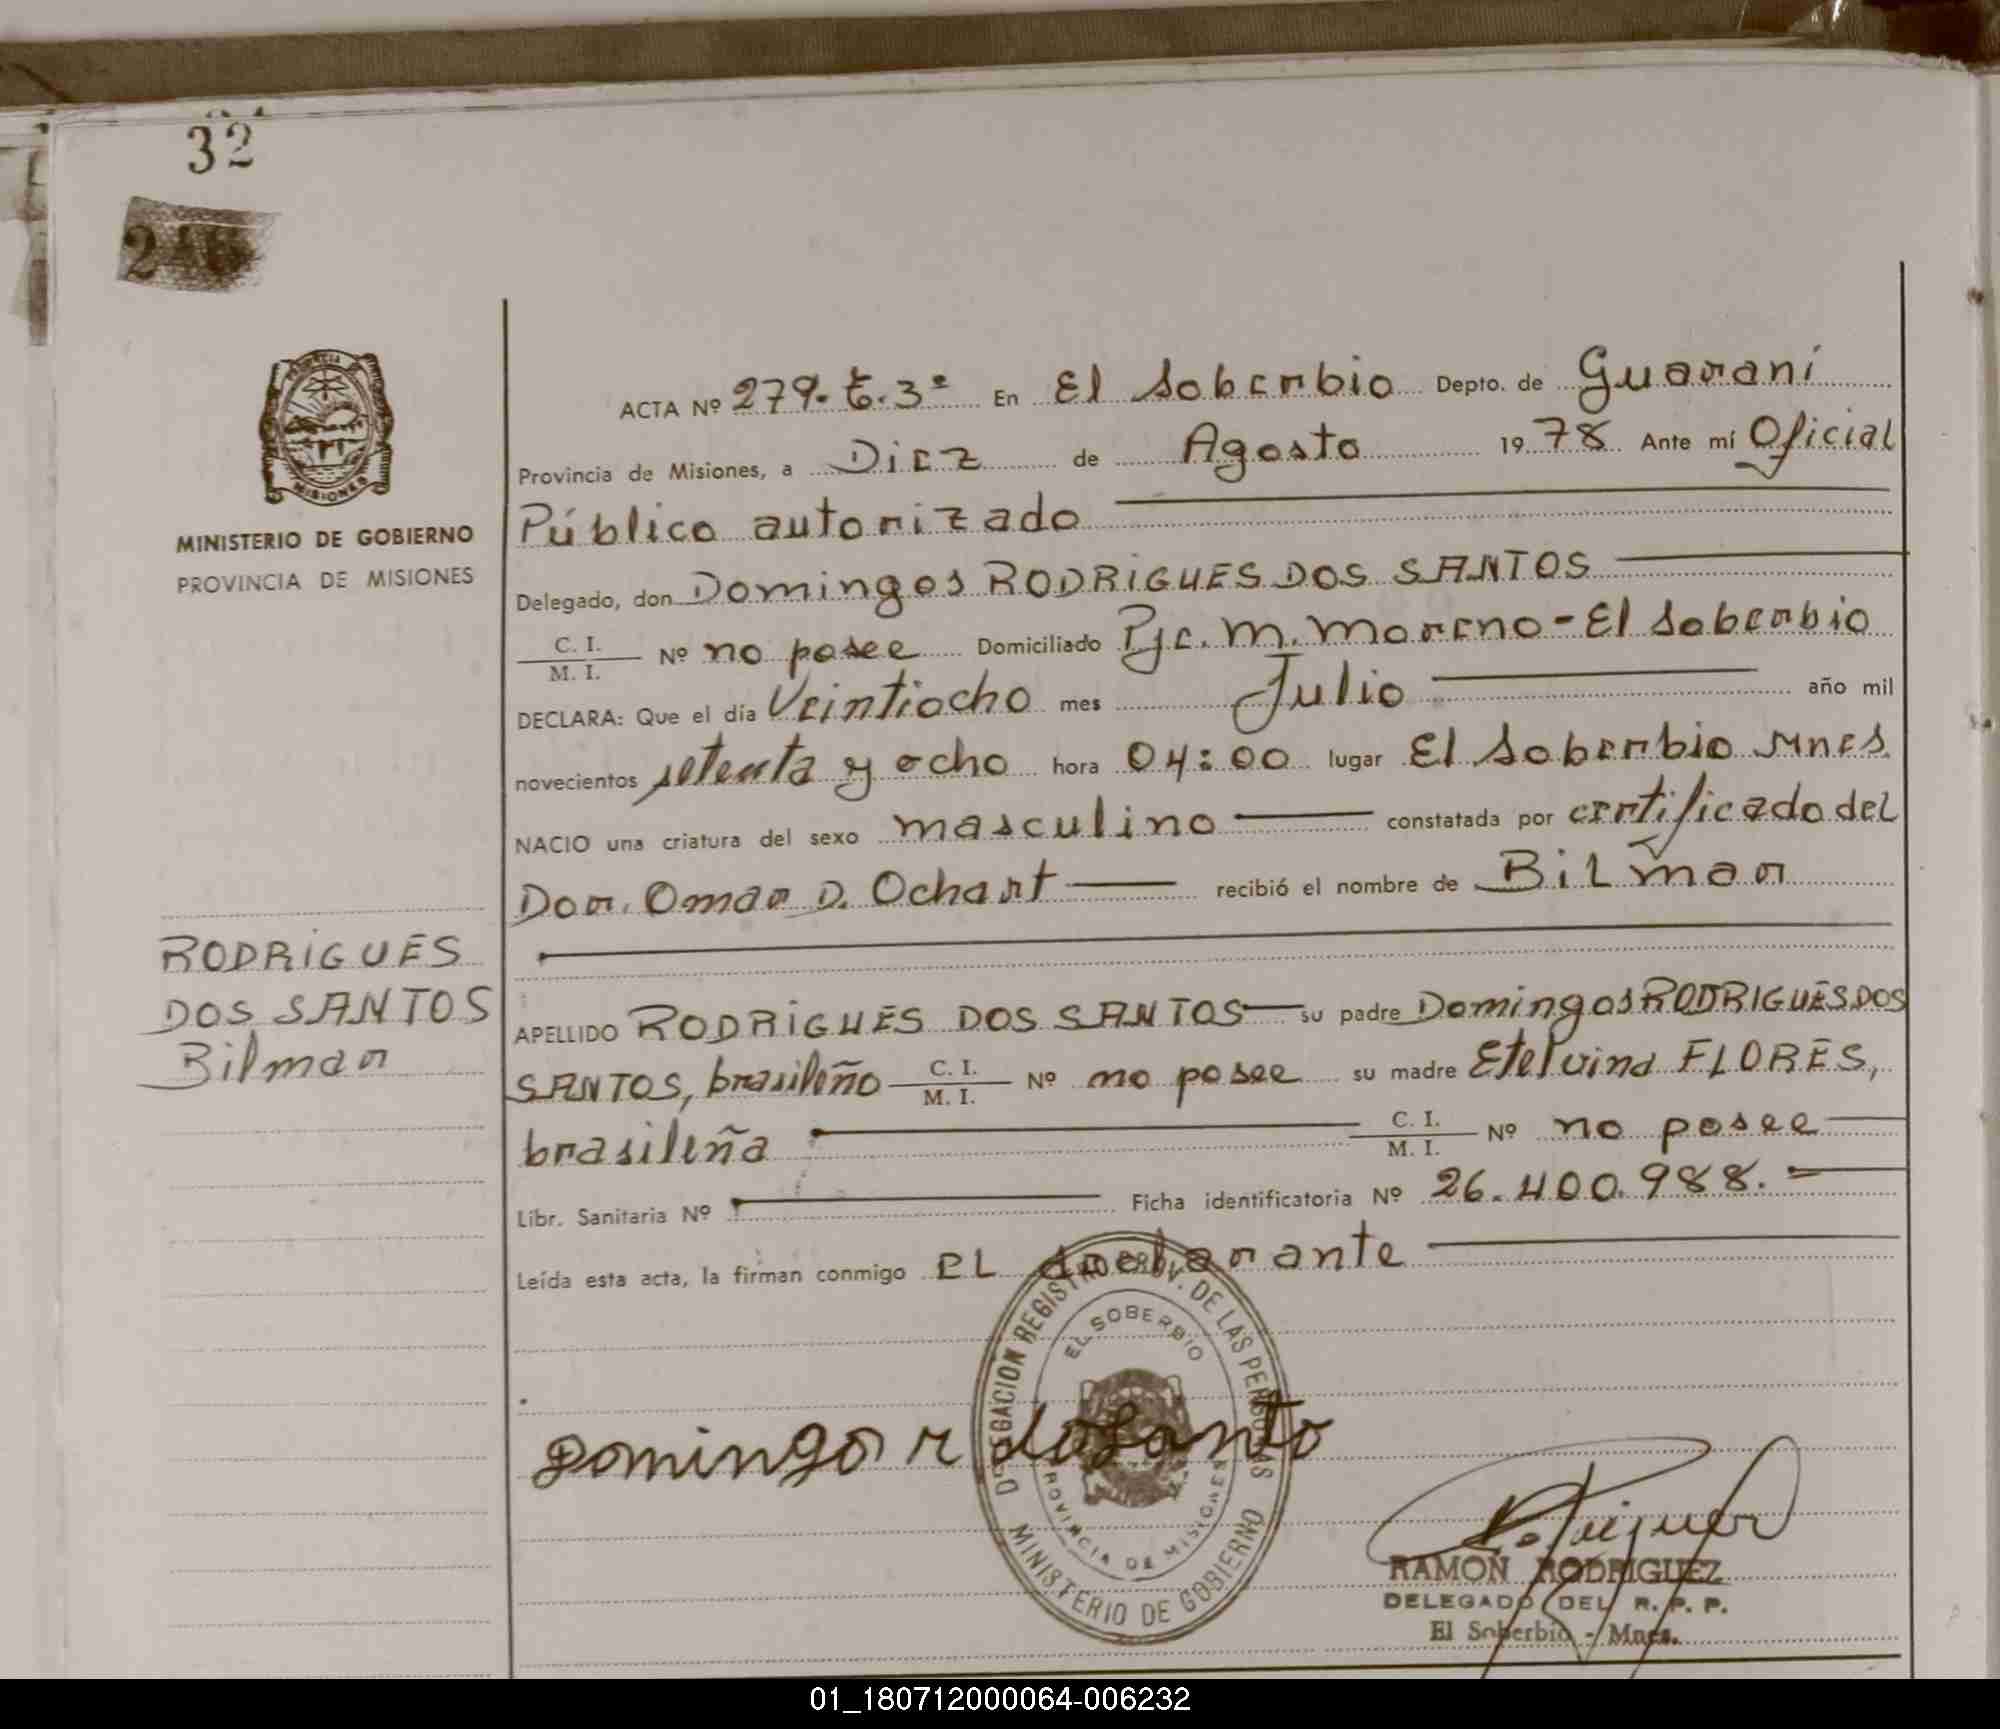 32
MINISTERIO DE GOBIERNO
PROVINCIA DE MISIONES
RODRIGUES
DOS SANTOS
Bilmar
ACTA Nº 279. t. 3º En El Soberbio Depto. de Guaraní
Provincia de Misiones, a Diez de Agosto 1978 Ante mí Oficial
Público autorizado
Delegado, don Domingos RODRIGUES DOS SANTOS
C. I.
M. I. Nº no posee Domiciliado Pje. M. Moreno - El Soberbio
DECLARA: Que el día Veintiocho mes Julio año mil
novecientos setenta y ocho hora 04:00 lugar El Soberbio Mnes
NACIO una criatura del sexo masculino constatada por certificado del
Dor. Omar D. Ochart recibió el nombre de Bilmar
APELLIDO RODRIGUES DOS SANTOS su padre Domingos RODRIGUES DOS
SANTOS, brasileño C. I. M. I. Nº no posee su madre Etelvina FLORES,
brasileña C. I. M. I. Nº no posee
Libr. Sanitaria Nº Ficha identificatoria Nº 26.400.988.
Leída esta acta, la firman conmigo EL declarante
DELEGACION REGISTRO PROV. DE LAS PERSONAS
EL SOBERBIO
PROVINCIA DE MISIONES
MINISTERIO DE GOBIERNO
Domingo r dosanto
RAMON RODRIGUEZ
DELEGADO DEL R. P. P.
El Soberbio - Mnes.
01_180712000064-006232